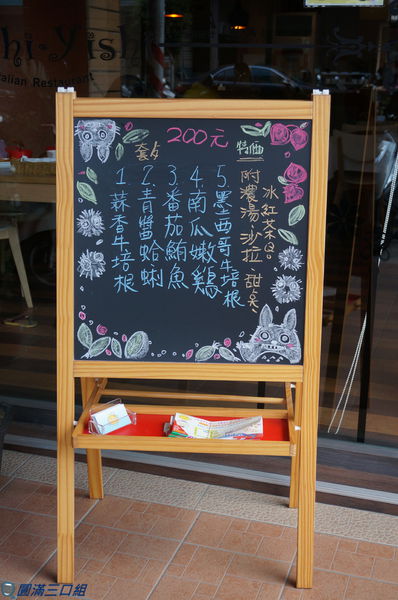 hi-Yishi
alian Restaurant
200元
套歺
特価
1.辣香牛培根
2.青醬蛤蜊
3.番茄鮪魚
4.南瓜嫩雞
5.墨西哥牛培根
附濃湯.沙拉.甜点
冰紅茶
圓滿三口組